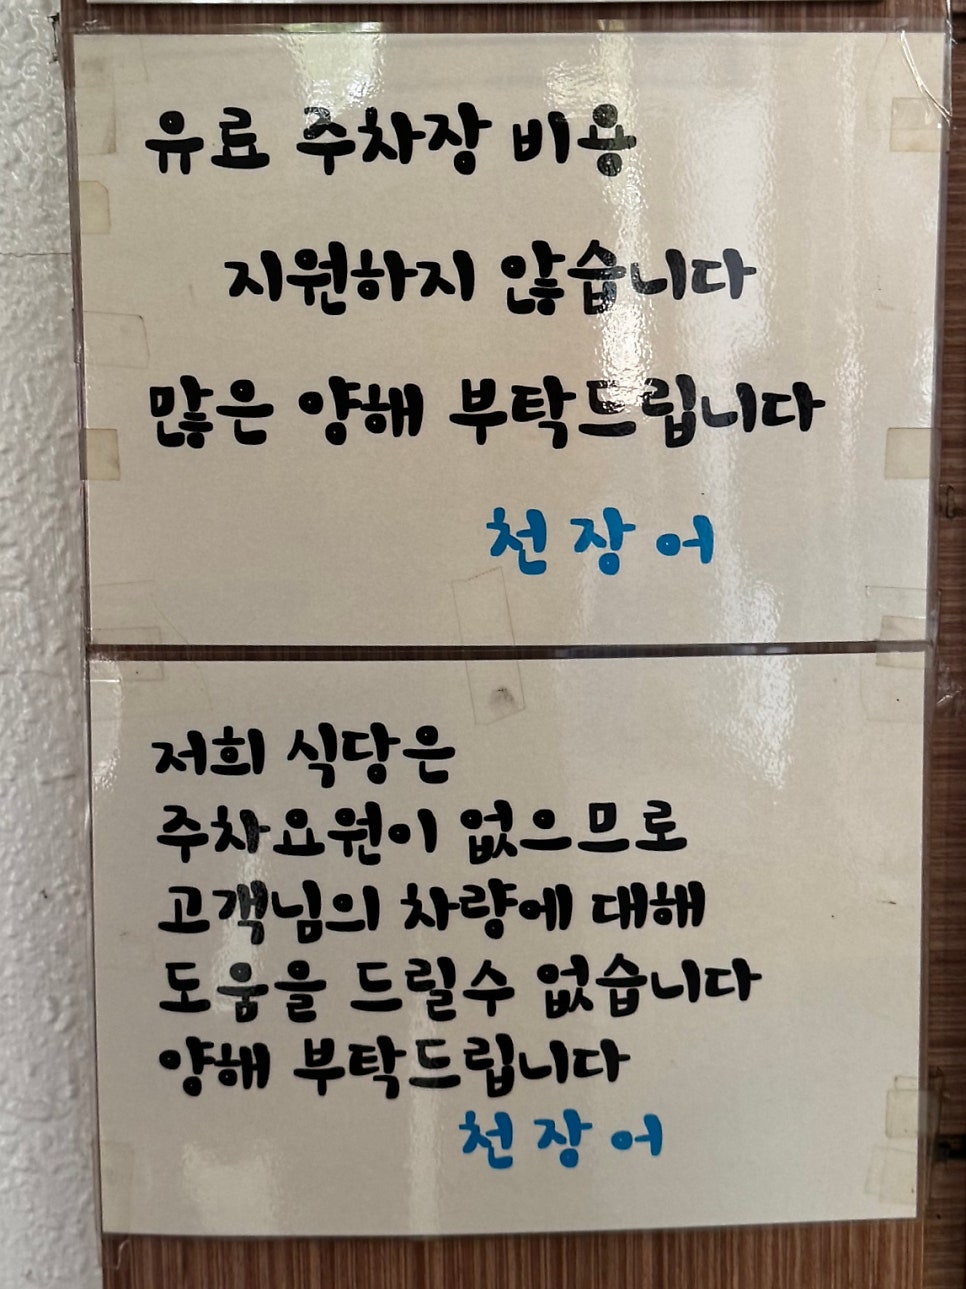 유료 주차장 비용
지원하지 않습니다
많은 양해 부탁드립니다
천장어
저희 식당은
주차요원이 없으므로
고객님의 차량에 대해
도움을 드릴수 없습니다
양해 부탁드립니다
천장어